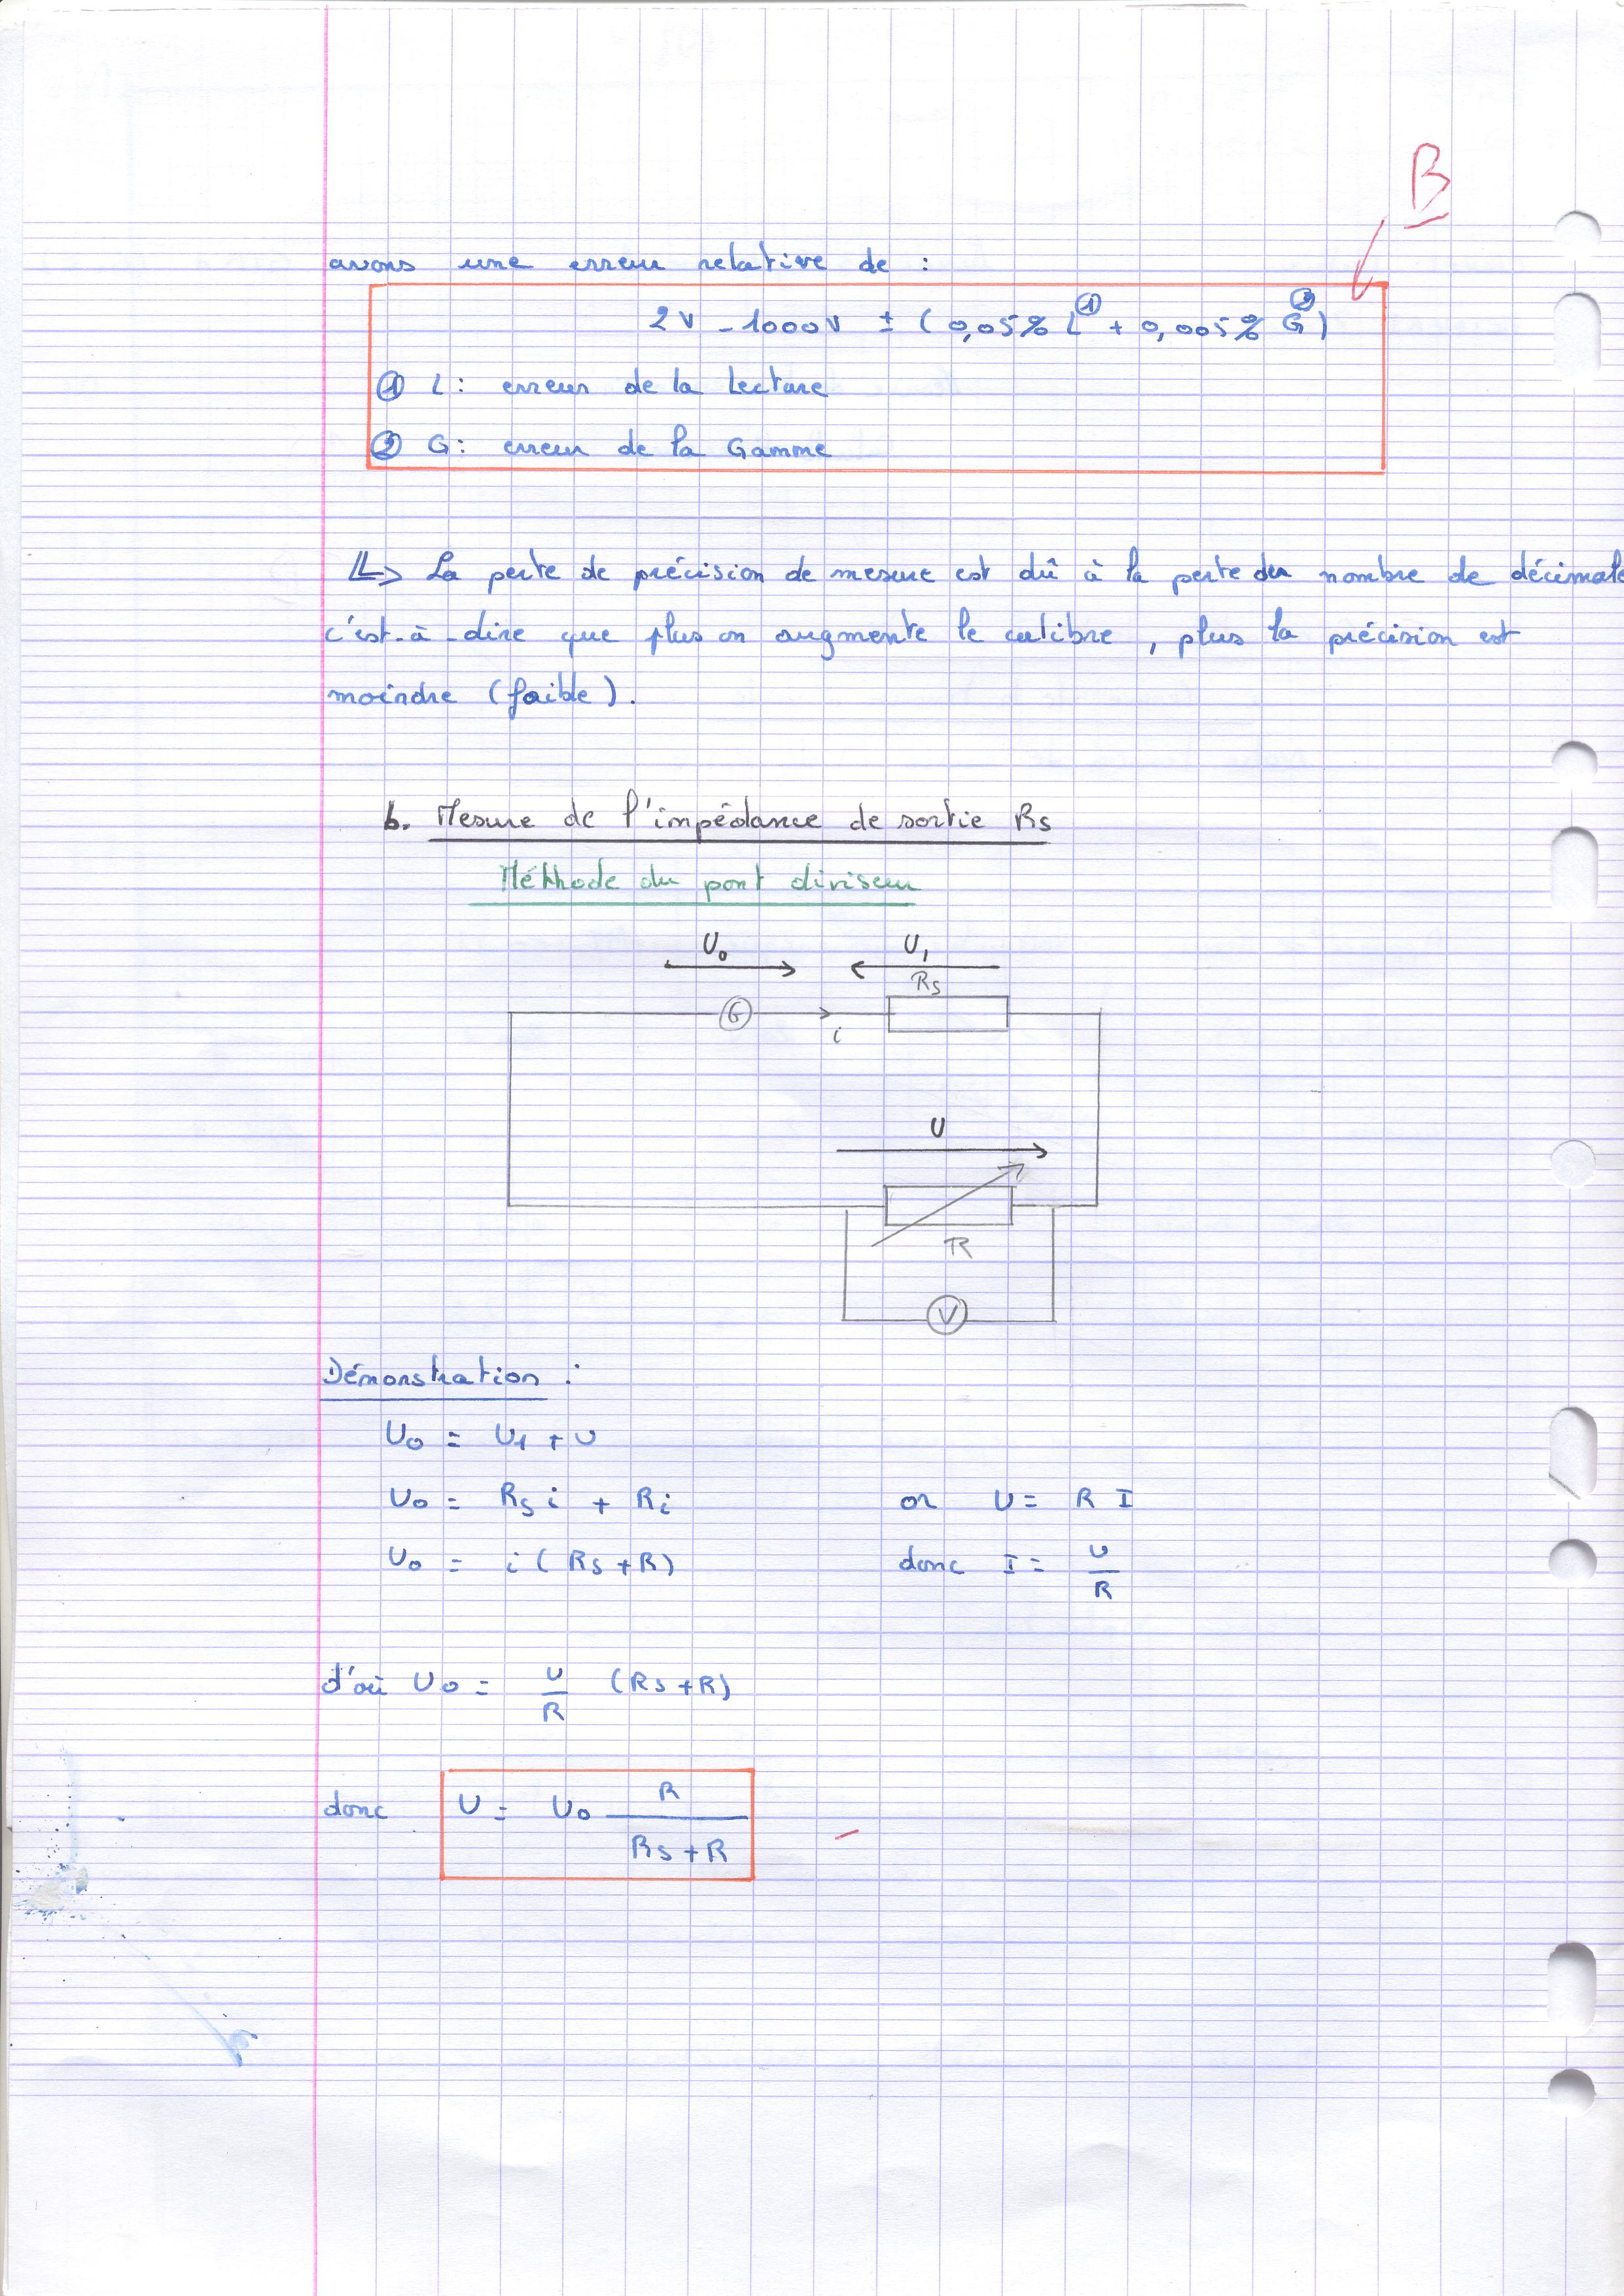 B
avons une erreur relative de :
2V - 1000V ± (0,05% L ① + 0,005% G ②)
① L : erreur de la Lecture
② G : erreur de la Gamme
↳ La perte de précision de mesure est dû à la perte du nombre de décimale
c'est-à-dire que plus on augmente le calibre, plus la précision est
moindre (faible).
b. Mesure de l'impédance de sortie Rs
Méthode du pont diviseur
U₀ U₁
Rs
G
i
U
R
V
Démonstration :
U₀ = U₁ + U
U₀ = Rs i + Ri or U = R I
U₀ = i (Rs + R) donc I = U/R
d'où U₀ = U/R (Rs + R)
donc U = U₀ R/(Rs + R)